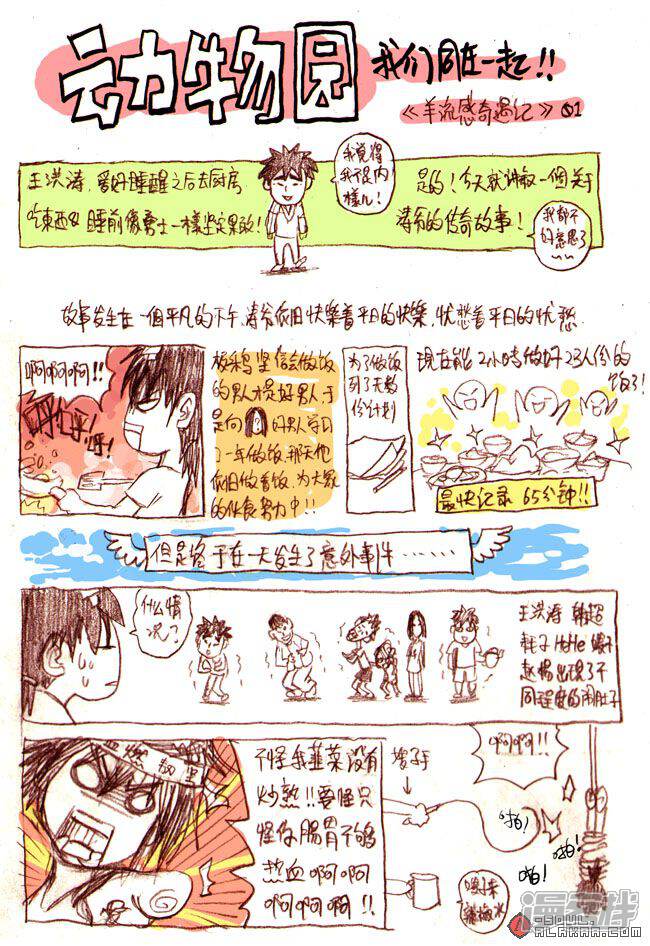 云力牛物园
我们同在一起!!
《羊流感奇遇记》01
王洪涛,爱好睡醒之后去厨房
吃東西&睡前像勇士一樣坚定果敢!
我觉得
我不是内
樣儿!
是的!今天就讲叙一個关于
涛爷的传奇故事!
我都不
好意思了~
故事发生在一個平凡的下午,涛爷依旧快樂着平日的快樂,忧愁着平日的忧愁.
啊啊啊啊!!
呼呼!
呼!
板鸦坚信会做饭
的男人才是好男人于
是向 的男人学习
了一年做饭,那天他
依旧做着饭,为大家
的伙食努力中!!
为了做饭
列了无数
份计划
现在能2小時做好23人份的
饭了!
最快记录65分钟!!
但是终于在一天发生了意外事件……
什么情
况?
王洪涛 韩超
耗子 HeHe 嫚子
赵楊出現了不
同程度的闹肚子
血燃厨皇
不怪我韭菜没有
炒熟!!要怪只
怪你腸胃不够
热血啊啊啊
啊啊啊啊!!
啊啊!!
啪!
啪!
啪!
辣椒水
漫客栈
-BOUL.
ALAKAA.COM